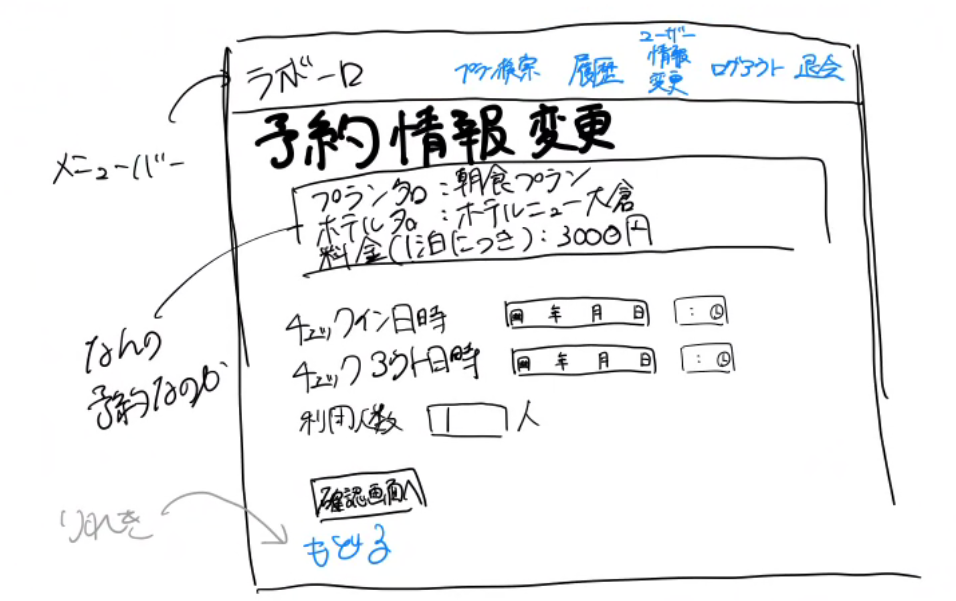 ラボーロ
プラン検索
履歴
ユーザー
情報
変更
ログアウト
退会
メニューバー
予約情報変更
プラン名:朝食プラン
ホテル名:ホテルニュー大倉
料金(1泊につき):3000円
なんの
予約なのか
チェックイン日時
年 月 日
:
チェックアウト日時
年 月 日
:
利用人数 人
確認画面へ
りれき
もどる